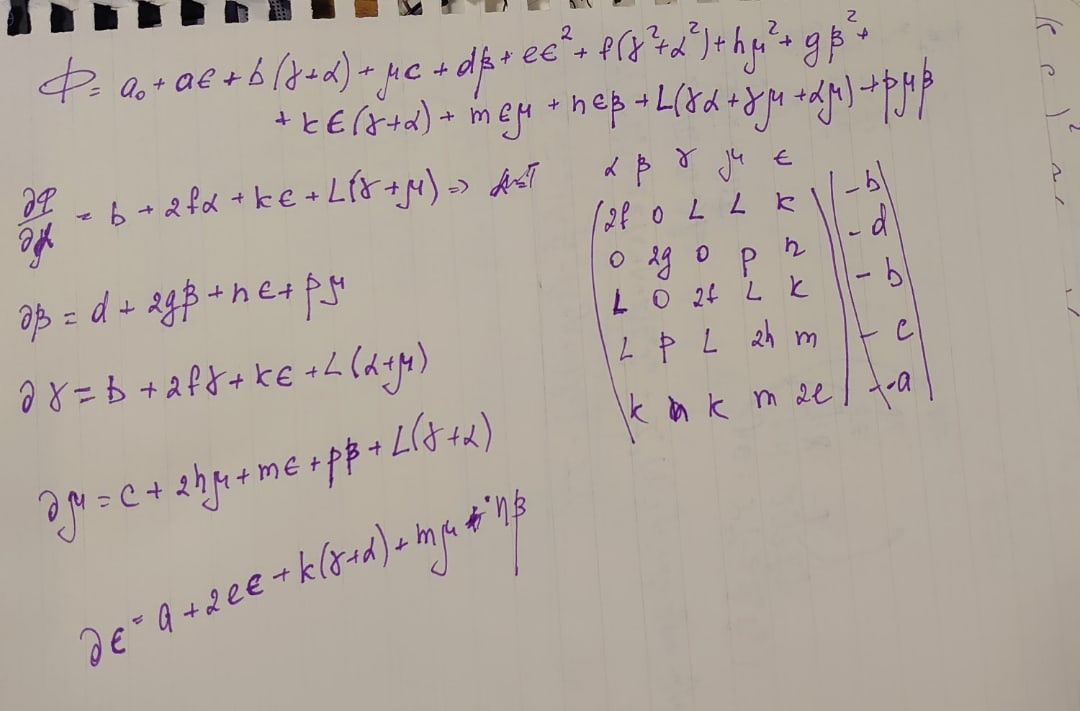 Φ = a₀ + aϵ + b(γ+α) + μc + dβ + eϵ² + f(γ²+α²) + hμ² + gβ² +
+ kϵ(γ+α) + mϵμ + nϵβ + L(γα + γμ + αμ) + pμβ
∂Φ/∂α = b + 2fα + kϵ + L(γ+μ) =>
∂β = d + 2gβ + nϵ + pμ
∂γ = b + 2fγ + kϵ + L(α+μ)
∂μ = c + 2hμ + mϵ + pβ + L(γ+α)
∂ϵ = a + 2eϵ + k(γ+α) + mμ + nβ
α β γ μ ϵ
2f 0 L L k | -b
0 2g 0 p n | -d
L 0 2f L k | -b
L p L 2h m | -c
k n k m 2e | -a